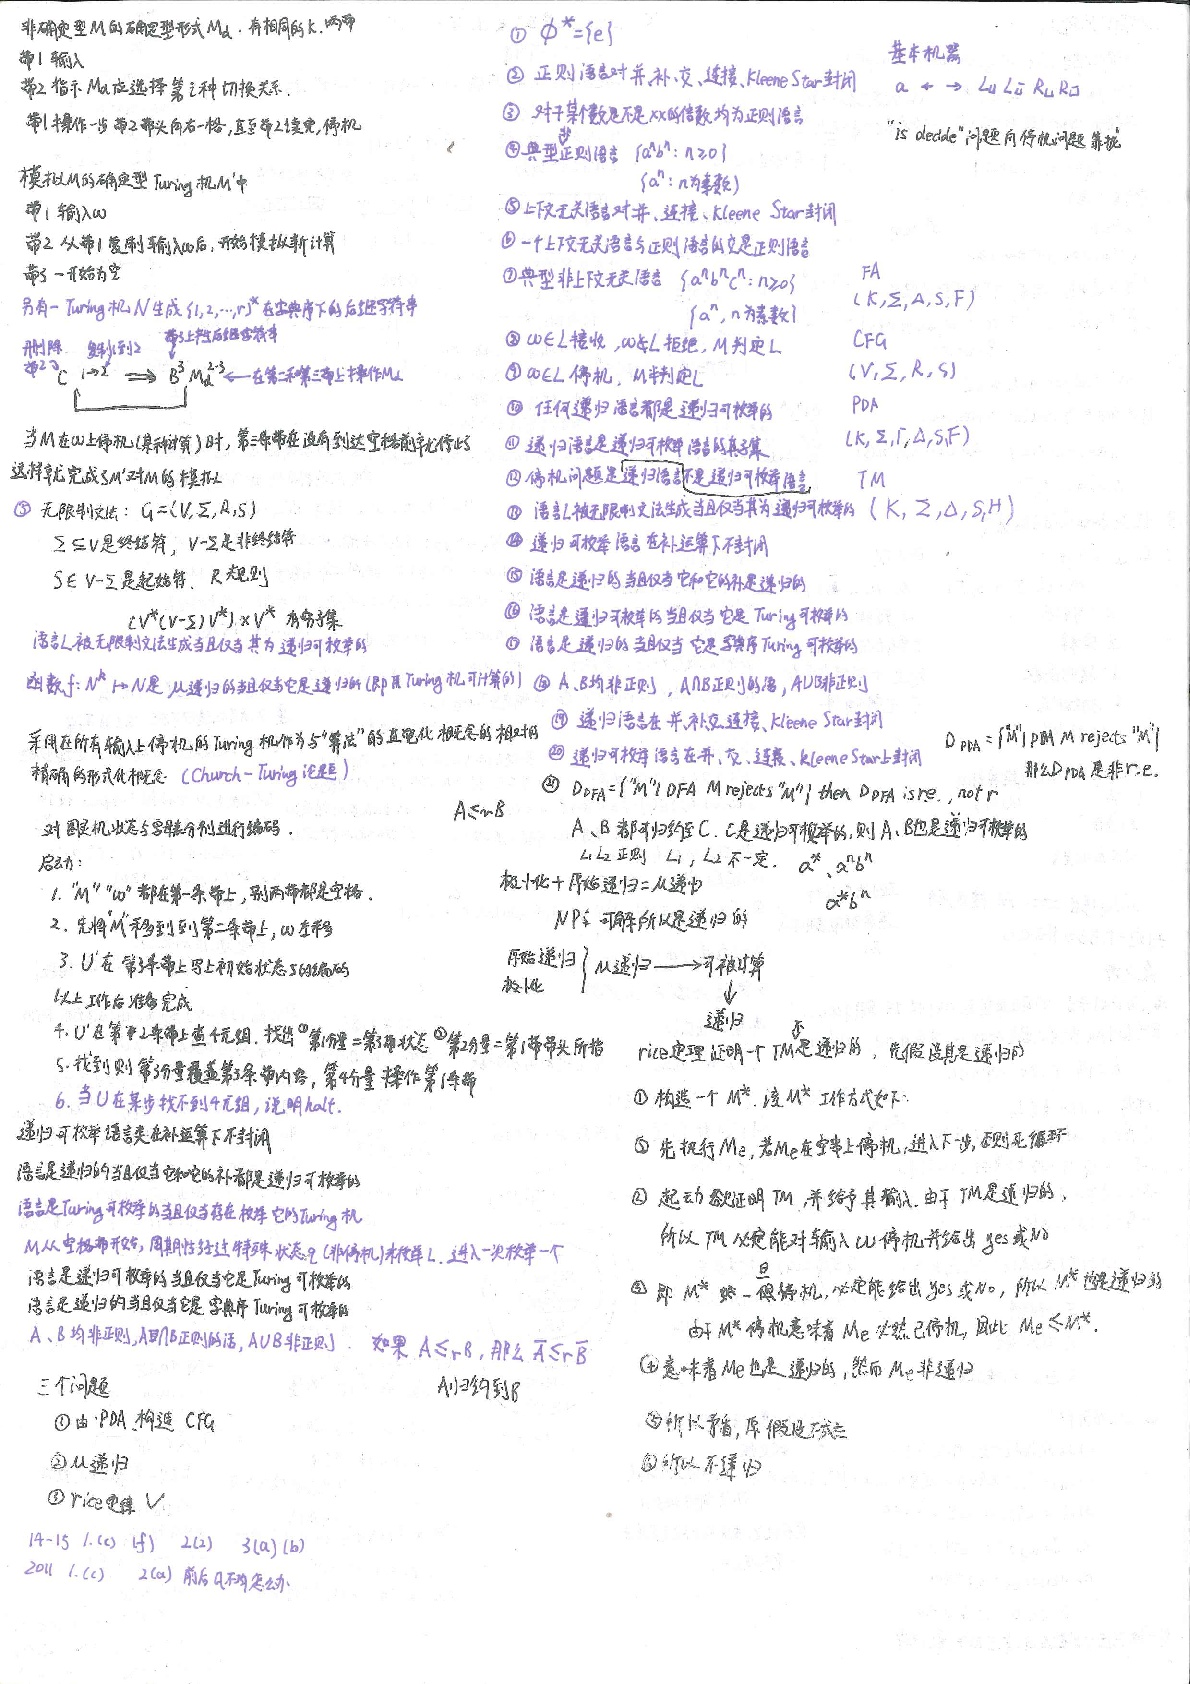 非确定型M的确定型形式Md. 有相同的K. 两带
带1 输入
带2 指示Md应选择第i种切换关系.
带1操作一步带2带头向右一格,直至带2读完,停机
模拟M的确定型Turing机M'中
带1 输入ω
带2 从带1复制输入ω后,开始模拟新计算
带3 一开始为空
另有一Turing机N生成{1,2,…,r}* 在字典序下的后继字符串
删除带2 复制1到2 带3上产生后继字符串
C 1→2 ⇒ B³ Md²⁻³ ← 在第二和第三带上操作Md
当M在ω上停机(某种计算)时,第三条带在没有到达空格前就停止了
这样就完成了M'对M的模拟
③ 无限制文法: G=(V,Σ,R,S)
Σ⊆V是终结符, V-Σ是非终结符
S∈V-Σ是起始符、R是规则
(V*(V-Σ)V*)×V* 有穷子集
语言L被无限制文法生成当且仅当其为递归可枚举的
函数f: Nᵏ↦N是 μ递归的当且仅当它是递归的(即用Turing机可计算的)
采用在所有输入上停机的Turing机作为与"算法"的直观化概念的相对的
精确的形式化概念 (Church-Turing论题)
A≤rB
对图灵机状态与字母表分别进行编码.
启动:
1. "M" "ω" 都在第一条带上,别两带都是空格.
2. 先将"M"移到到第二条带上, ω左移
3. U'在第3条带上写上初始状态s的编码
以上工作后准备完成
4. U'在第2条带上查4元组. 找出①第1分量=第3带状态②第2分量=第1带带头所指
5. 找到则第3分量覆盖第3条带内容, 第4分量操作第1条带
6. 当U在某步找不到4元组, 说明halt.
递归可枚举语言类在补运算下不封闭
语言是递归的当且仅当它和它的补都是递归可枚举的
语言是Turing可枚举的当且仅当存在枚举它的Turing机
M从空格带开始, 周期性经过特殊状态q (非停机)来枚举L. 进入一次枚举一个
语言是递归可枚举的当且仅当它是Turing可枚举的
语言是递归的当且仅当它是字典序Turing可枚举的
A、B均非正则, A∩B正则的话, A∪B非正则. 如果 A≤rB, 那么 A̅≤rB̅
A归约到B
三个问题
①由PDA构造 CFG
②μ递归
③rice定理 √
14-15 1.(c) (f) 2(2) 3(a)(b)
2011 1.(c) 2(a) 前后q不对怎么办
① ∅*={e}
② 正则语言对并、补、交、连接、Kleene Star封闭
③ 对于某个数是不是xx的倍数均为正则语言
④典型非正则语言 {aⁿbⁿ: n≥0}
{aⁿ: n为素数}
⑤上下文无关语言对并、连接、Kleene Star封闭
⑥一个上下文无关语言与正则语言的交是正则语言
⑦典型非上下文无关语言 {aⁿbⁿcⁿ: n≥0}
{aⁿ, n为素数}
⑧ ω∈L接收, ω∉L拒绝, M判定L
⑨ ω∈L停机, M半判定L
⑩ 任何递归语言都是递归可枚举的
⑪ 递归语言是递归可枚举语言的真子集
⑫ 停机问题是递归语言不是递归可枚举语言
⑬ 语言L被无限制文法生成当且仅当其为递归可枚举的
⑭ 递归可枚举语言在补运算下不封闭
⑮ 语言是递归的当且仅当它和它的补是递归的
⑯ 语言是递归可枚举的当且仅当它是Turing可枚举的
⑰ 语言是递归的当且仅当它是字典序Turing可枚举的
⑱ A、B均非正则, A∩B正则的话, A∪B非正则
⑲ 递归语言在并、补、交、连接、Kleene Star封闭
⑳ 递归可枚举语言在并、交、连接、Kleene Star上封闭
㉑ D_DFA={"M"| DFA M rejects "M"} then D_DFA is re., not r
A、B都可归约至C. C是递归可枚举的, 则A、B也是递归可枚举的
L₁L₂正则 L₁, L₂不一定. a*、aⁿbⁿ
a*bⁿ
极小化+原始递归=μ递归
NP: 可解所以是递归的
原始递归
极小化
μ递归 → 可被计算
↓
递归
基本机器
a ← → L⊔ L⊔̅ R⊔ R⊔̅
"is decide"问题向停机问题靠拢
FA
(K,Σ,Δ,S,F)
CFG
(V,Σ,R,S)
PDA
(K,Σ,Γ,Δ,S,F)
TM
(K,Σ,Δ,S,H)
D_PDA={"M"| PDA M rejects "M"}
那么D_PDA是非r.e.
rice定理证明一个TM是否递归的, 先假设其是递归的
① 构造一个M*. 该M*工作方式如下:
③ 先执行Me, 若Me在空串上停机, 进入下一步, 否则死循环
② 起动欲证明TM, 并给予其输入. 由于TM是递归的,
所以TM必定能对输入ω停机并给出yes或No
③ 即M*一旦停机, 必定能给出yes或No, 所以M*也是递归的
由于M*停机意味着Me必然已停机, 因此 Me≤M*.
④意味着Me也是递归的, 然而Me非递归
⑤所以矛盾, 原假设不成立
⑥所以不递归